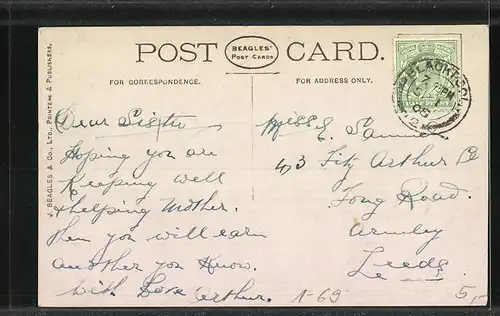 POST CARD.
BEAGLES'
Post Cards
FOR CORRESPONDENCE.
FOR ADDRESS ONLY.
J. BEAGLES & CO., LTD., PRINTERS & PUBLISHERS.
BLACKPOOL
Dear Sister
Hoping you are
Keeping well
& helping Mother.
Then you will earn
another you know.
With Love Arthur.
Miss E.
43 Fitz Arthur St
Tong Road.
Armley
Leeds.
1-69
5,-